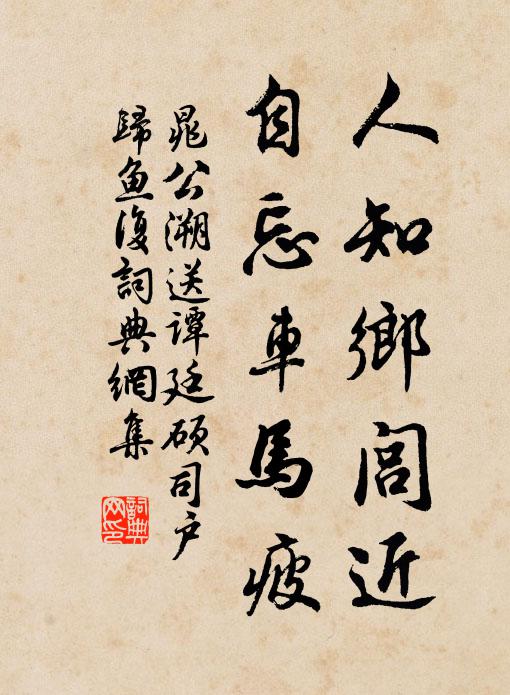 人知鄉閭近
自忘車馬疲
晁公溯送譚廷碩司户
歸魚復詞典網集
詞典網印